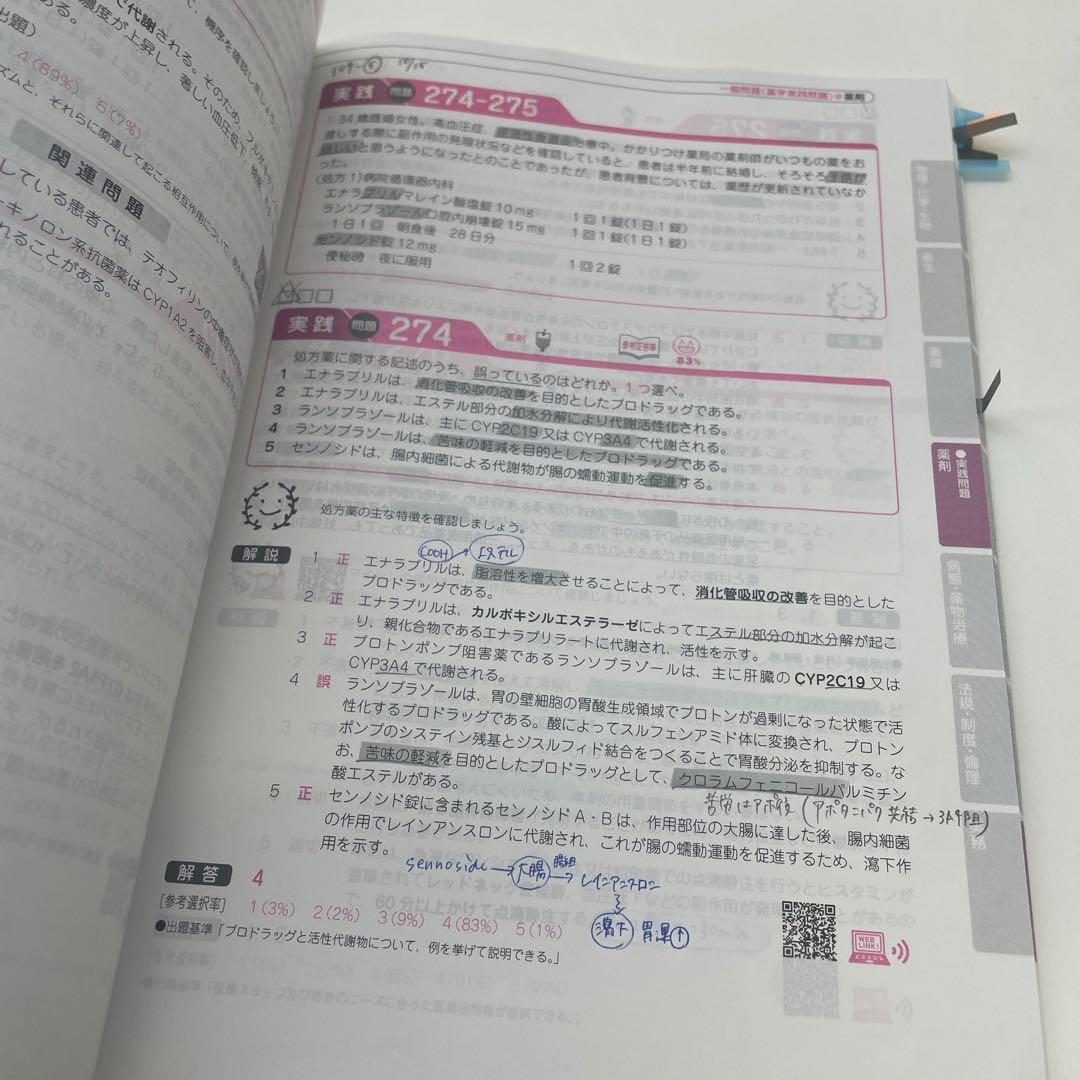 で代謝される。そのため、フルボ
濃度が上昇し、著しい血圧低下、頻脈、
ある。
出題）
て、機序を確認しましょう。
4（89%） 5（7%）
ズムと、それらに関連して起こる相互作用について、例を
関連問題
している患者では、テオフィリンの中毒症状
ーキノロン系抗菌薬はCYP1A2を阻害し、
れることがある。
109-⑤ 10/15
一般問題（薬学実践問題）●薬剤
実践 問題 274-275
34歳既婦女性。高血圧症、逆流性食道炎治療中。かかりつけ薬局の薬剤師がいつもの薬をお
渡しする際に副作用の発現状況などを確認していると、患者は半年前に結婚し、そろそろ子供が
ほしいと思うようになったとのことであったが、患者背景については、薬歴が更新されていなか
った。
（処方1）病院循環器内科
エナラプリルマレイン酸塩錠10mg 1回1錠（1日1錠）
ランソプラゾール口腔内崩壊錠15mg 1回1錠（1日1錠）
1日1回 朝食後 28日分
センノシド錠12mg 1回2錠
便秘時 夜に服用
実践 問題 274 薬剤 参考正答率 83%
処方薬に関する記述のうち、誤っているのはどれか。1つ選べ。
1 エナラプリルは、消化管吸収の改善を目的としたプロドラッグである。
2 エナラプリルは、エステル部分の加水分解により代謝活性化される。
3 ランソプラゾールは、主にCYP2C19又はCYP3A4で代謝される。
4 ランソプラゾールは、苦味の軽減を目的としたプロドラッグである。
5 センノシドは、腸内細菌による代謝物が腸の蠕動運動を促進する。
処方薬の主な特徴を確認しましょう。
COOH → エステル
解説 1 正 エナラプリルは、脂溶性を増大させることによって、消化管吸収の改善を目的とした
プロドラッグである。
2 正 エナラプリルは、カルボキシルエステラーゼによってエステル部分の加水分解が起こ
り、親化合物であるエナラプリラートに代謝され、活性を示す。
3 正 プロトンポンプ阻害薬であるランソプラゾールは、主に肝臓のCYP2C19又は
CYP3A4で代謝される。
4 誤 ランソプラゾールは、胃の壁細胞の胃酸生成領域でプロトンが過剰になった状態で活
性化するプロドラッグである。酸によってスルフェンアミド体に変換され、プロトン
ポンプのシステイン残基とジスルフィド結合をつくることで胃酸分泌を抑制する。な
お、苦味の軽減を目的としたプロドラッグとして、クロラムフェニコールパルミチン
酸エステルがある。
5 正 センノシド錠に含まれるセンノシドA・Bは、作用部位の大腸に達した後、腸内細菌
の作用でレインアンスロンに代謝され、これが腸の蠕動運動を促進するため、瀉下作
用を示す。
sennoside → 大腸 → レインアンスロン
瀉下
解答 4
[参考選択率] 1（3%） 2（2%） 3（9%） 4（83%） 5（1%）
●出題基準「プロドラッグと活性代謝物について、例を挙げて説明できる。」
WEB LINK!
衛生
薬理
●実践問題
薬剤
病態・薬物治療
法規・制度・倫理